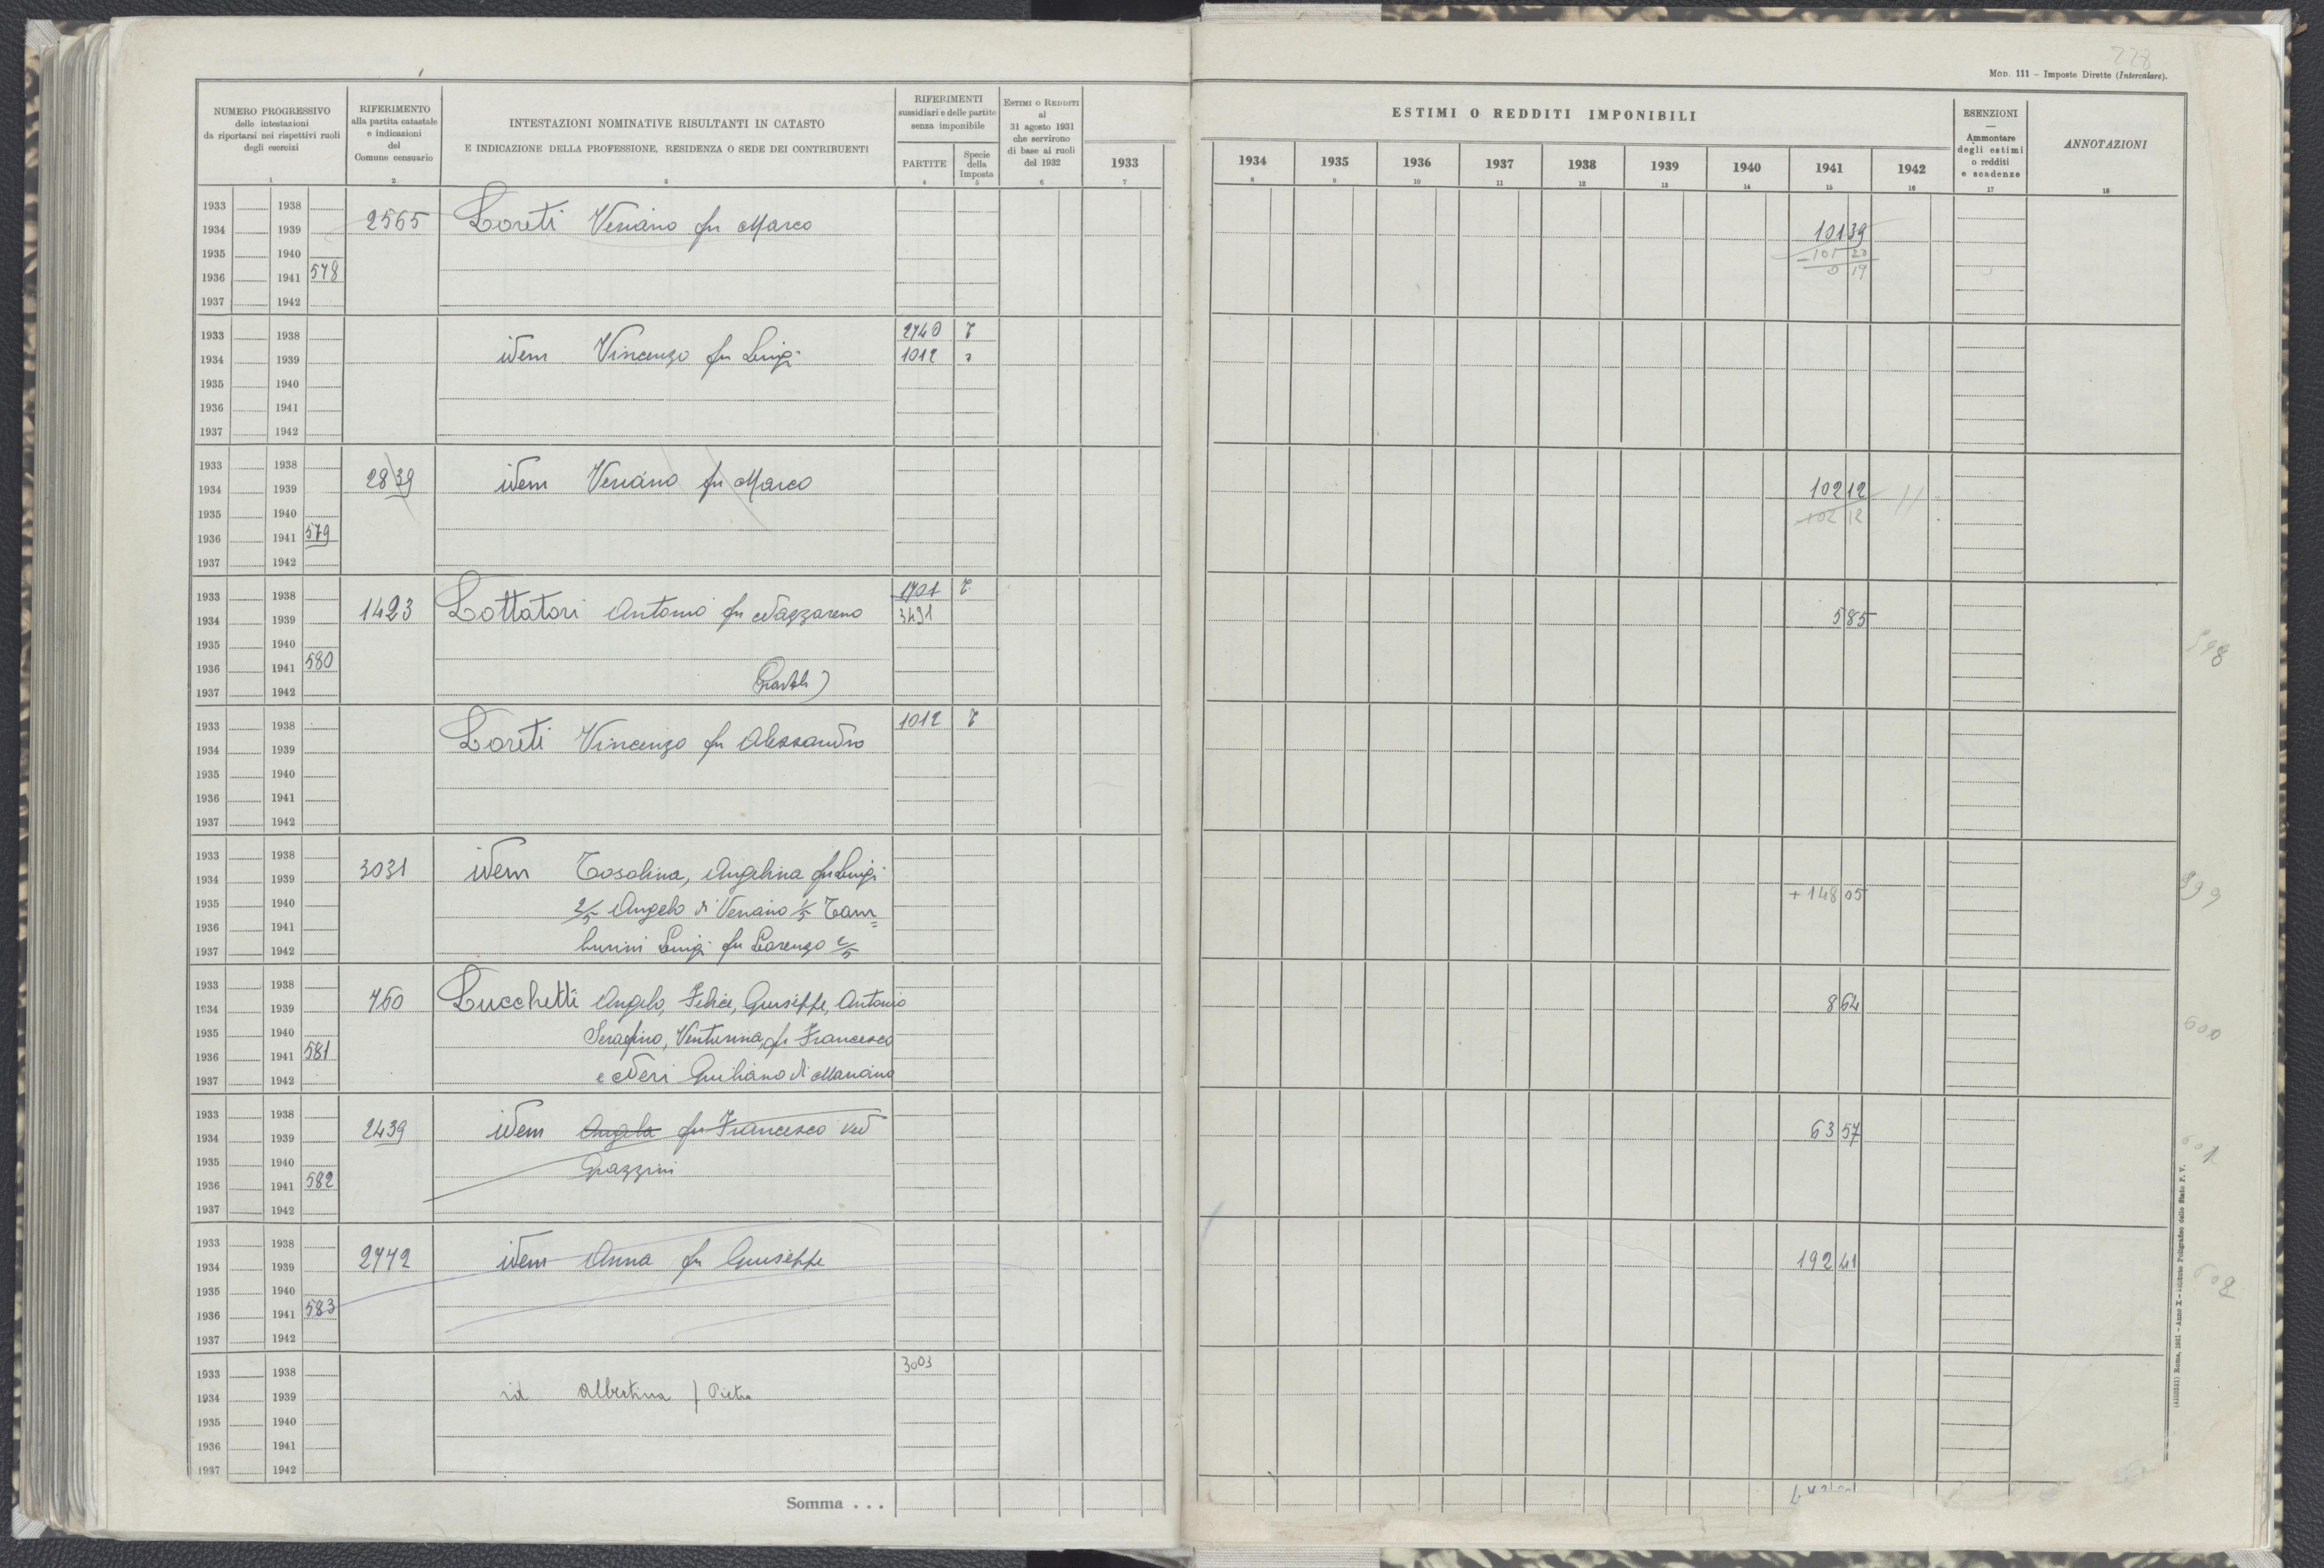 228
MOD. 111 – Imposte Dirette (Intercalare).
NUMERO PROGRESSIVO
delle intestazioni
da riportarsi nei rispettivi ruoli
degli esercizi
RIFERIMENTO
alla partita catastale
e indicazioni
del
Comune censuario
INTESTAZIONI NOMINATIVE RISULTANTI IN CATASTO
E INDICAZIONE DELLA PROFESSIONE, RESIDENZA O SEDE DEI CONTRIBUENTI
RIFERIMENTI
sussidiari e delle partite
senza imponibile
PARTITE
Specie
della
Imposta
ESTIMI O REDDITI
al
31 agosto 1931
che servirono
di base ai ruoli
del 1932
ESTIMI O REDDITI IMPONIBILI
1933 1934 1935 1936 1937 1938 1939 1940 1941 1942
ESENZIONI
—
Ammontare
degli estimi
o redditi
e scadenze
ANNOTAZIONI
1 2 3 4 5 6 7 8 9 10 11 12 13 14 15 16 17 18
1933 1938
1934 1939 2565 Loreti Veriano fu Marco 101 39
1935 1940 – 101 20
1936 1941 578 0 19
1937 1942
1933 1938 2740 T
1934 1939 idem Vincenzo fu Luigi 1012 "
1935 1940
1936 1941
1937 1942
1933 1938
1934 1939 2839 idem Veriano fu Marco 102 12
1935 1940 102 12
1936 1941 579
1937 1942
1933 1938 1701 T
1934 1939 1423 Lottatori Antonio fu Nazzareno 3491 5 85
1935 1940 598
1936 1941 580
1937 1942
1933 1938 1012 T
1934 1939 Loreti Vincenzo fu Alessandro
1935 1940
1936 1941
1937 1942
1933 1938
1934 1939 3031 idem Tosolina, Angelina fu Luigi
1935 1940 2/5 Angelo di Veriano 1/5 Tam= + 148 05 599
1936 1941
1937 1942 burini Luigi fu Lorenzo 2/5
1933 1938
1934 1939 760 Lucchetti Angelo, Felice, Giuseppe, Antonio 8 64
1935 1940 Serafino, Venturina, fu Francesco 600
1936 1941 581
1937 1942 e Neri Giuliano di Mariano
1933 1938
1934 1939 2439 idem Angela fu Francesco ved 63 57
1935 1940 Grazzini 601
1936 1941 582
1937 1942
1933 1938
1934 1939 2772 idem Anna fu Giuseppe 192 41
1935 1940 602
1936 1941 583
1937 1942
1933 1938 3003
1934 1939 id Albertina f Pietro
1935 1940
1936 1941
1937 1942
Somma . . .
Roma, 1931 – Anno X – Istituto Poligrafico dello Stato P. V.